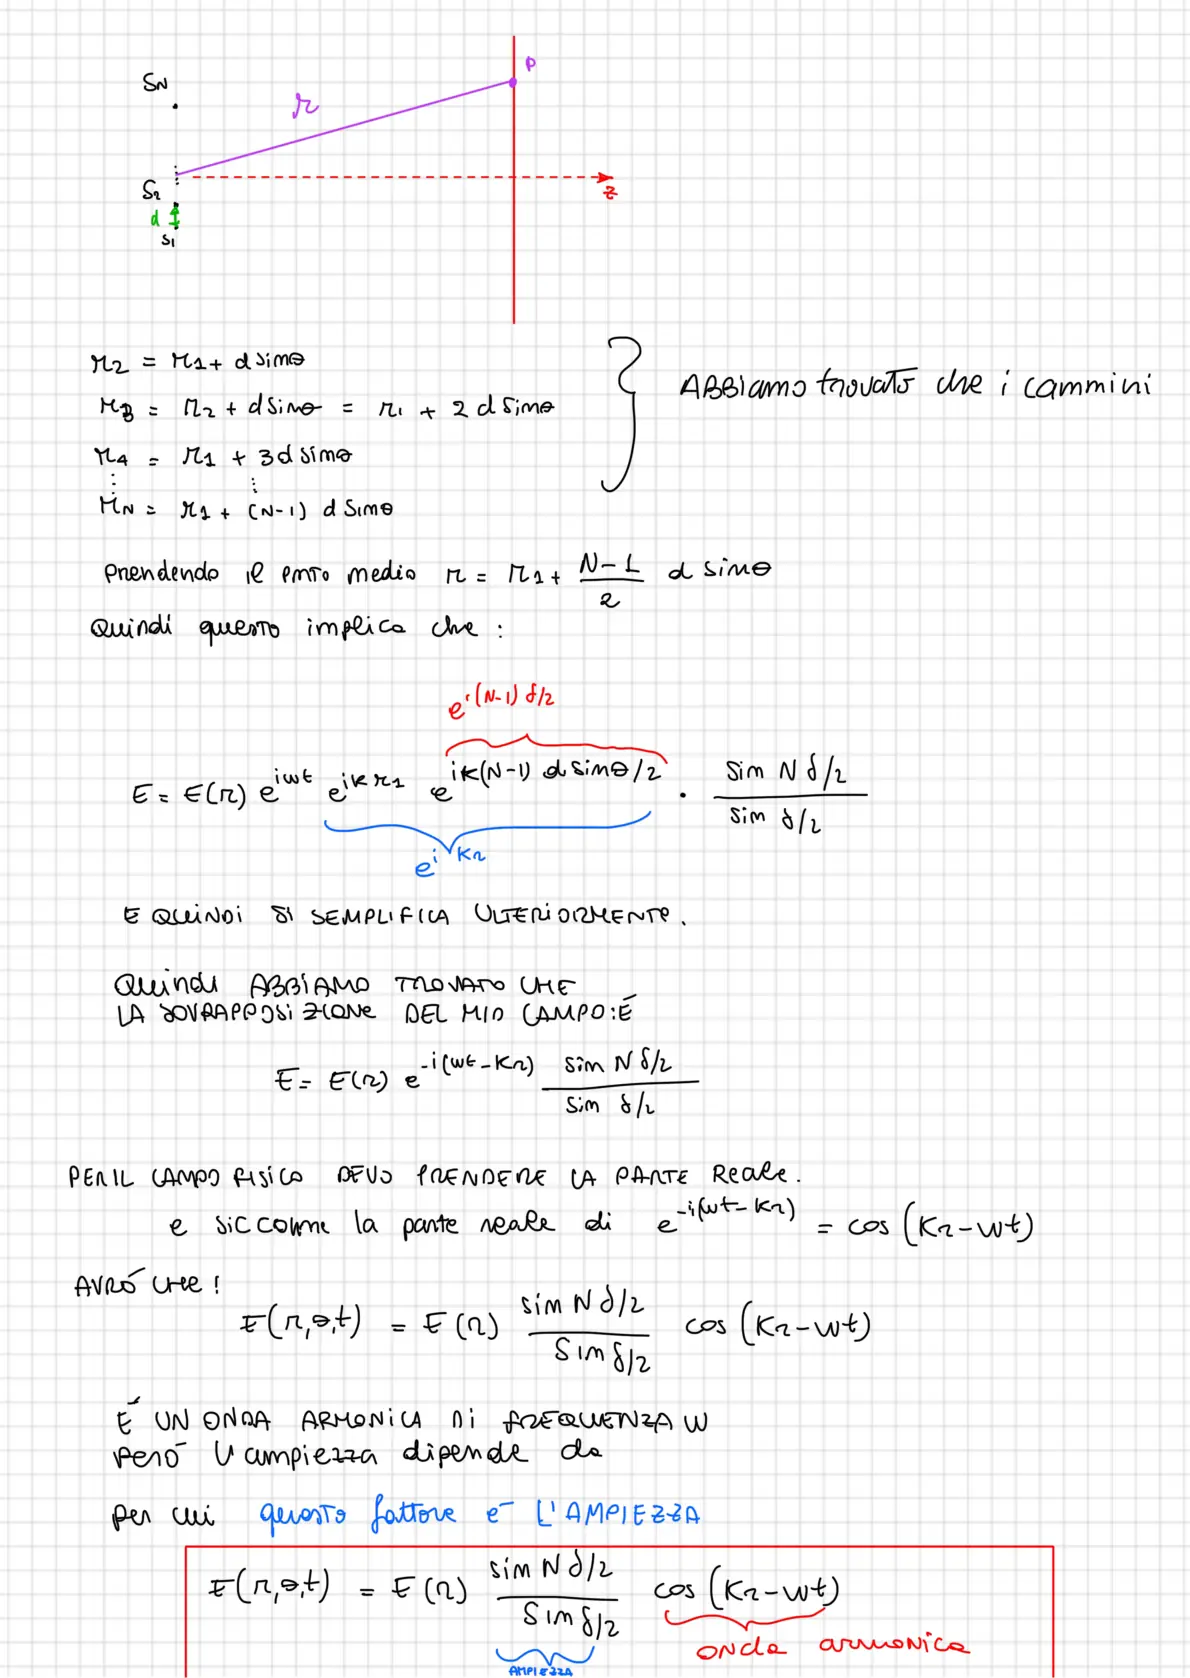 SN
r
P
S2
z
d
S1
r2 = r1 + d sinθ
r3 = r2 + d sinθ = r1 + 2 d sinθ
ABBiamo trovato che i cammini
r4 = r1 + 3d sinθ
⋮ ⋮
rN = r1 + (N-1) d sinθ
Prendendo il pnto medio r = r1 + (N-1)/2 d sinθ
Quindi questo implica che :
e^i(N-1) δ/2
E = E(r) e^iwt e^ikr1 e^ik(N-1) d sinθ/2 · (sin N δ/2)/(sin δ/2)
e^i kr
E QUINDI SI SEMPLIFICA ULTERIORMENTE.
Quindi ABBIAMO TROVATO CHE
LA SOVRAPPOSIZIONE DEL MIO CAMPO: É
E = E(r) e^-i(wt-kr) (sin N δ/2)/(sin δ/2)
PER IL CAMPO FISICO DEVO PRENDERE LA PARTE Reale.
e siccome la parte reale di e^-i(wt-kr) = cos (kr-wt)
AVRÓ CHE !
E(r,θ,t) = E(r) (sin N δ/2)/(sin δ/2) cos (kr-wt)
É UN ONDA ARMONICA Di FREQUENZA W
però l'ampiezza dipende da
per cui questo fattore e' L'AMPIEZZA
E(r,θ,t) = E(r) (sin N δ/2)/(sin δ/2) cos (kr-wt)
AMPIEZZA
onda armonica